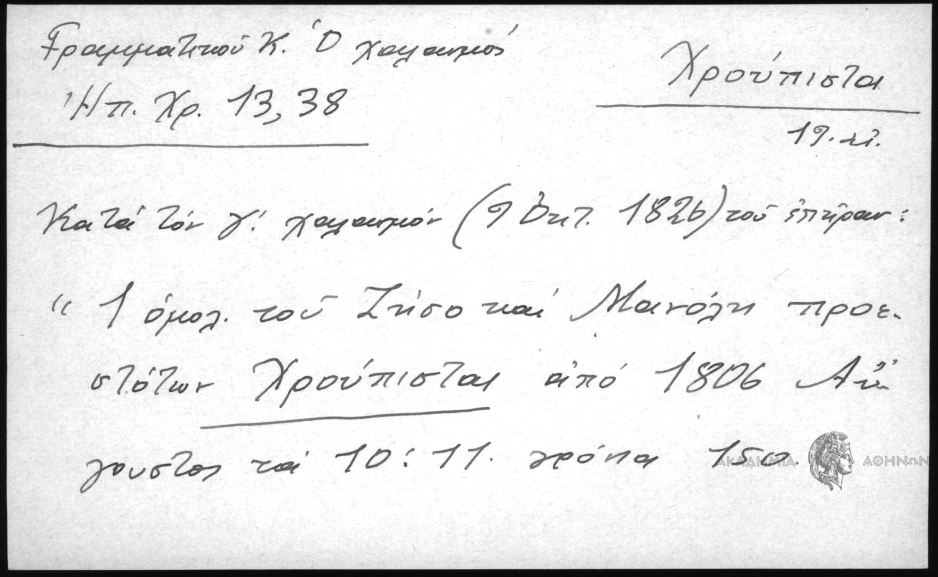 Γραμματικού Κ. Ὁ χαλασμός
Ἠπ. Χρ. 13, 38
Χρούπιστα
19. αἰ.
Κατά τόν γ΄. χαλασμόν (9 Ὀκτ. 1826) τοῦ ἐπῆραν:
“ 1 ὁμολ. τοῦ Ζήσο καί Μανόλη προε-
στότων Χρούπισται ἀπό 1806 Αὐ
γουστος τά 10: 11. γρόσια 150.
ΑΚΑΔΗΜΙΑ ΑΘΗΝΩΝ